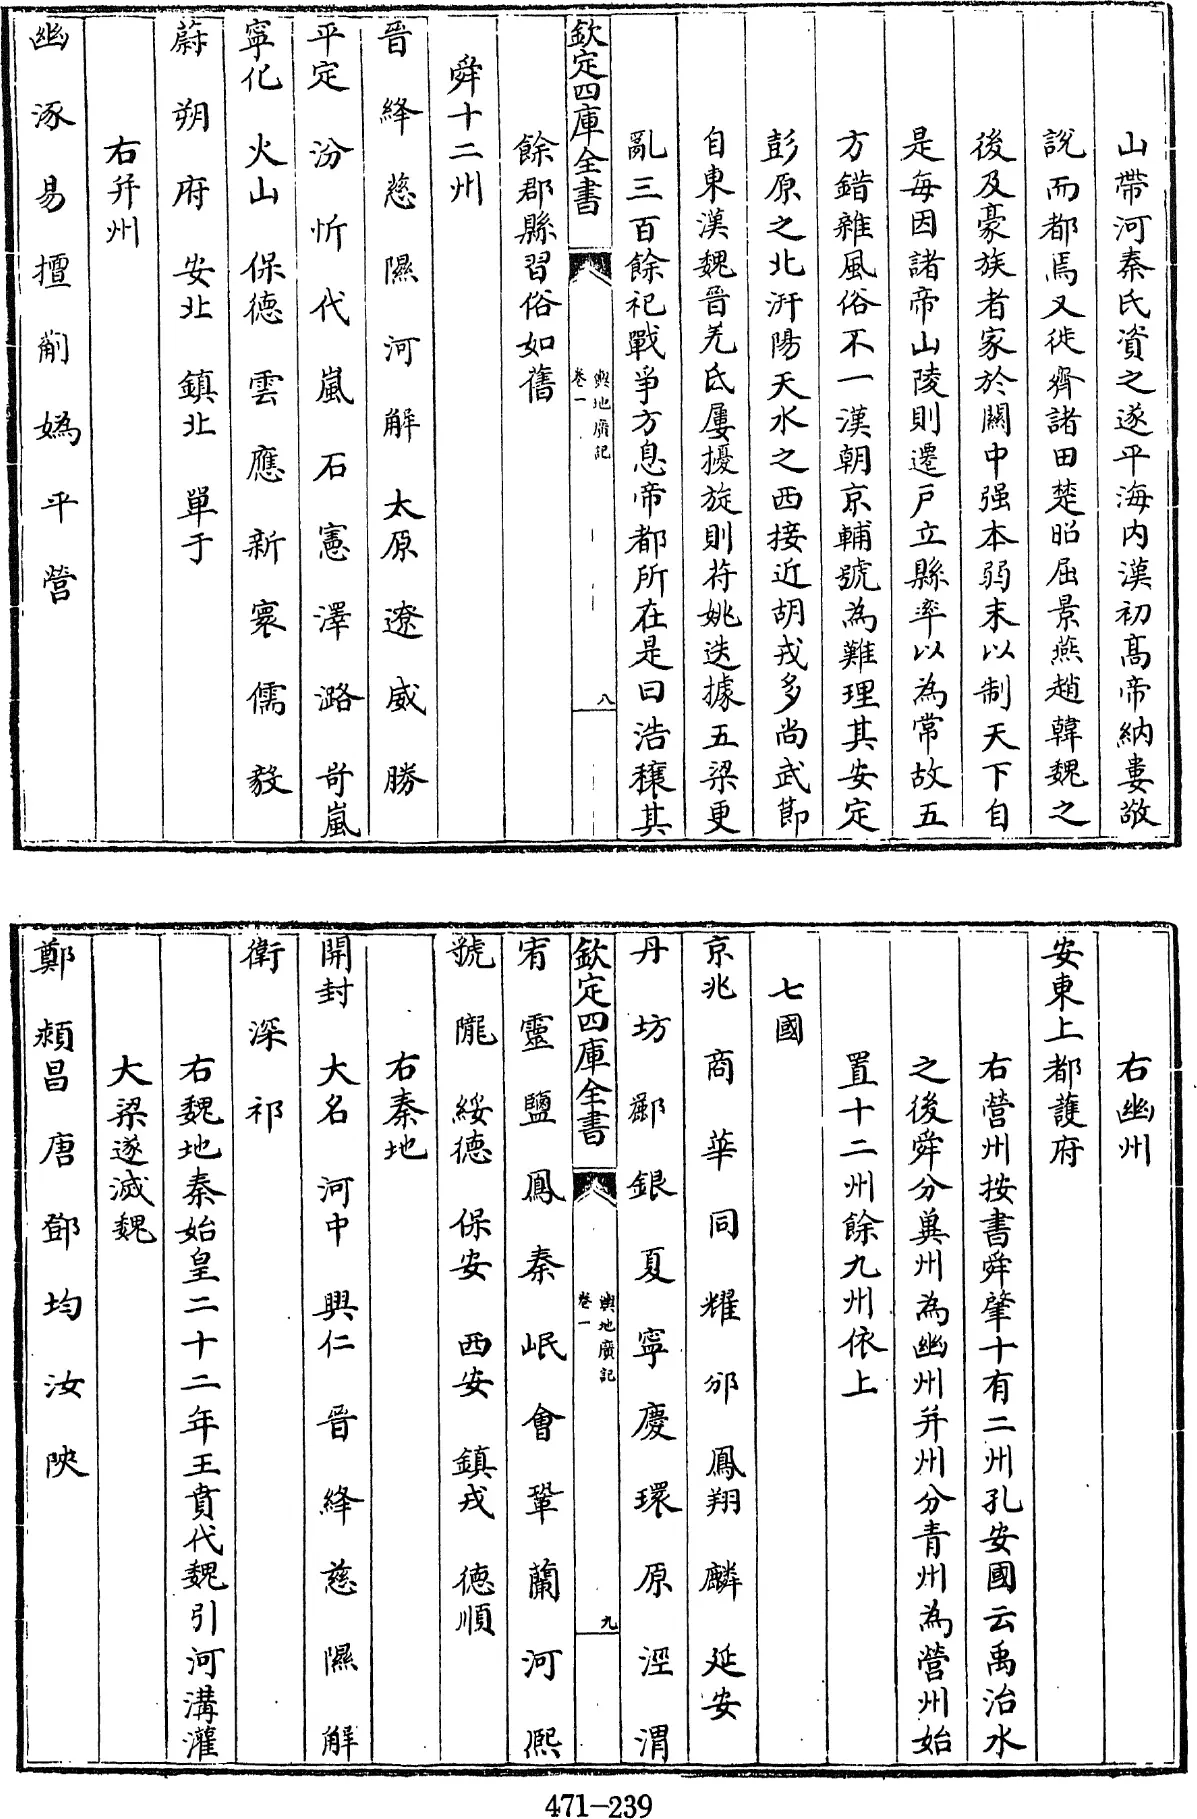 山帶河秦氏資之遂平海内漢初髙帝納婁敬
說而都焉又徙齊諸田楚昭屈景燕趙韓魏之
後及豪族者家於關中强本弱末以制天下自
是每因諸帝山陵則遷戸立縣率以為常故五
方錯雜風俗不一漢朝京輔號為難理其安定
彭原之北汧陽天水之西接近胡戎多尚武節
自東漢魏晉羌氐屢擾旋則苻姚迭據五梁更
亂三百餘祀戰爭方息帝都所在是曰浩穰其
欽定四庫全書
輿地廣記
卷一
八
餘郡縣習俗如舊
舜十二州
晉 絳 慈 隰 河 解 太原 遼 威 勝
平定 汾 忻 代 嵐 石 憲 澤 潞 岢嵐
寧化 火山 保德 雲 應 新 寰 儒 毅
蔚 朔 府 安北 鎮北 單于
右并州
幽 涿 易 擅 薊 媯 平 營
右幽州
安東上都護府
右營州按書舜肇十有二州孔安國云禹治水
之後舜分兾州為幽州并州分青州為營州始
置十二州餘九州依上
七國
京兆 商 華 同 耀 邠 鳳翔 麟 延安
丹 坊 鄜 銀 夏 寧 慶 環 原 涇 渭
欽定四庫全書
輿地廣記
卷一
九
宥 靈 鹽 鳳 秦 岷 會 鞏 蘭 河 熈
虢 隴 綏德 保安 西安 鎮戎 德順
右秦地
開封 大名 河中 興仁 晉 絳 慈 隰 解
衛 深 祁
右魏地秦始皇二十二年王賁代魏引河溝灌
大梁遂滅魏
鄭 頴昌 唐 鄧 均 汝 陜
471-239